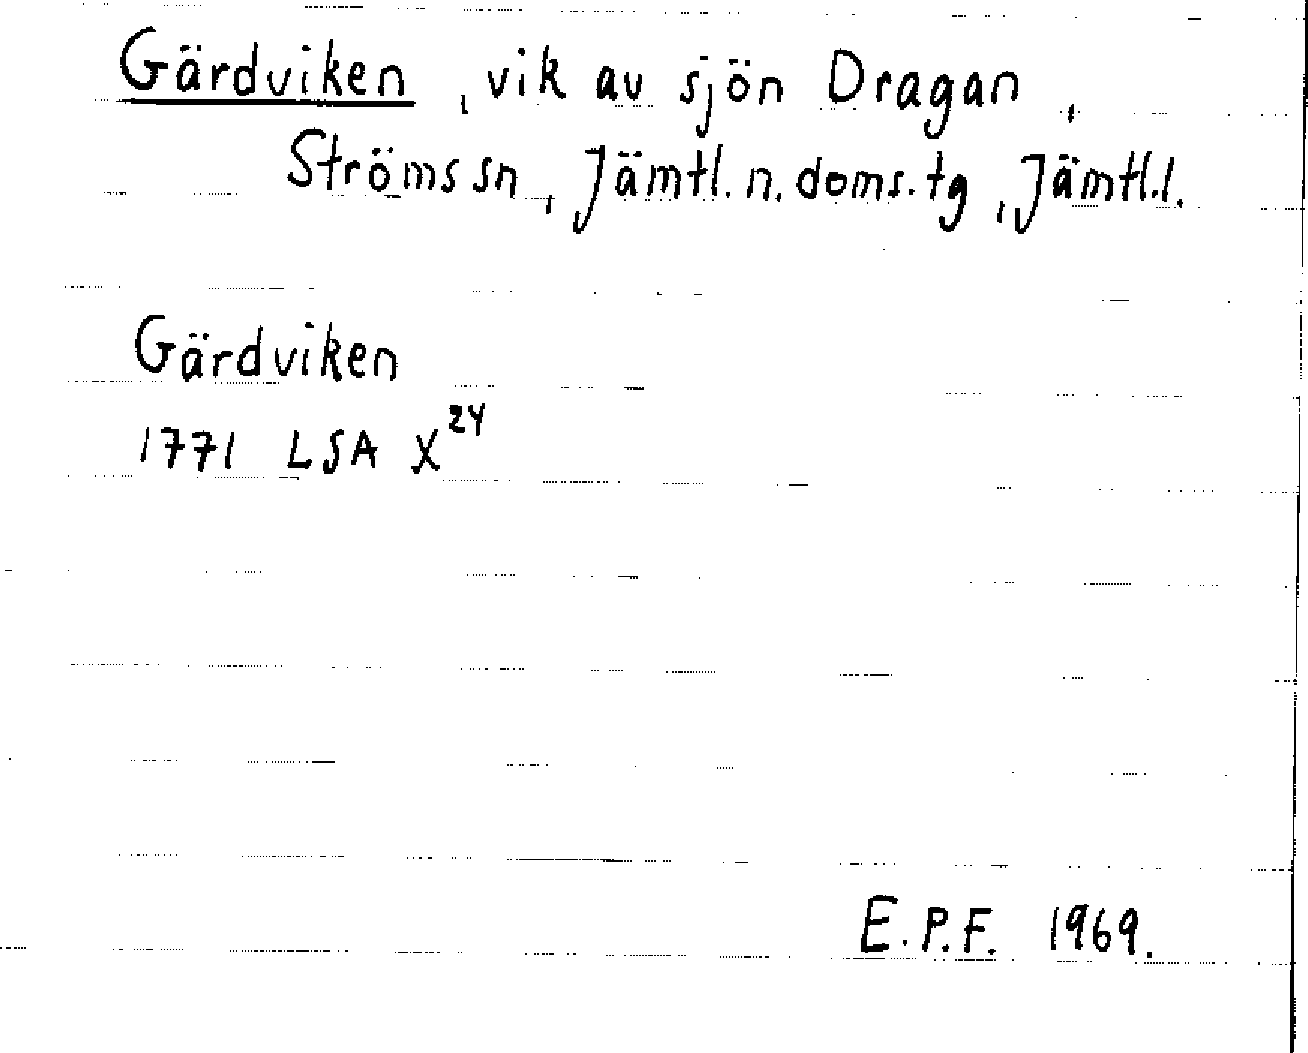 Gärdviken, vik av sjön Dragan,
Ströms sn, Jämtl. n. doms. tg, Jämtl. l.
Gärdviken
1771 LSA X²⁴
E.P.F. 1969.